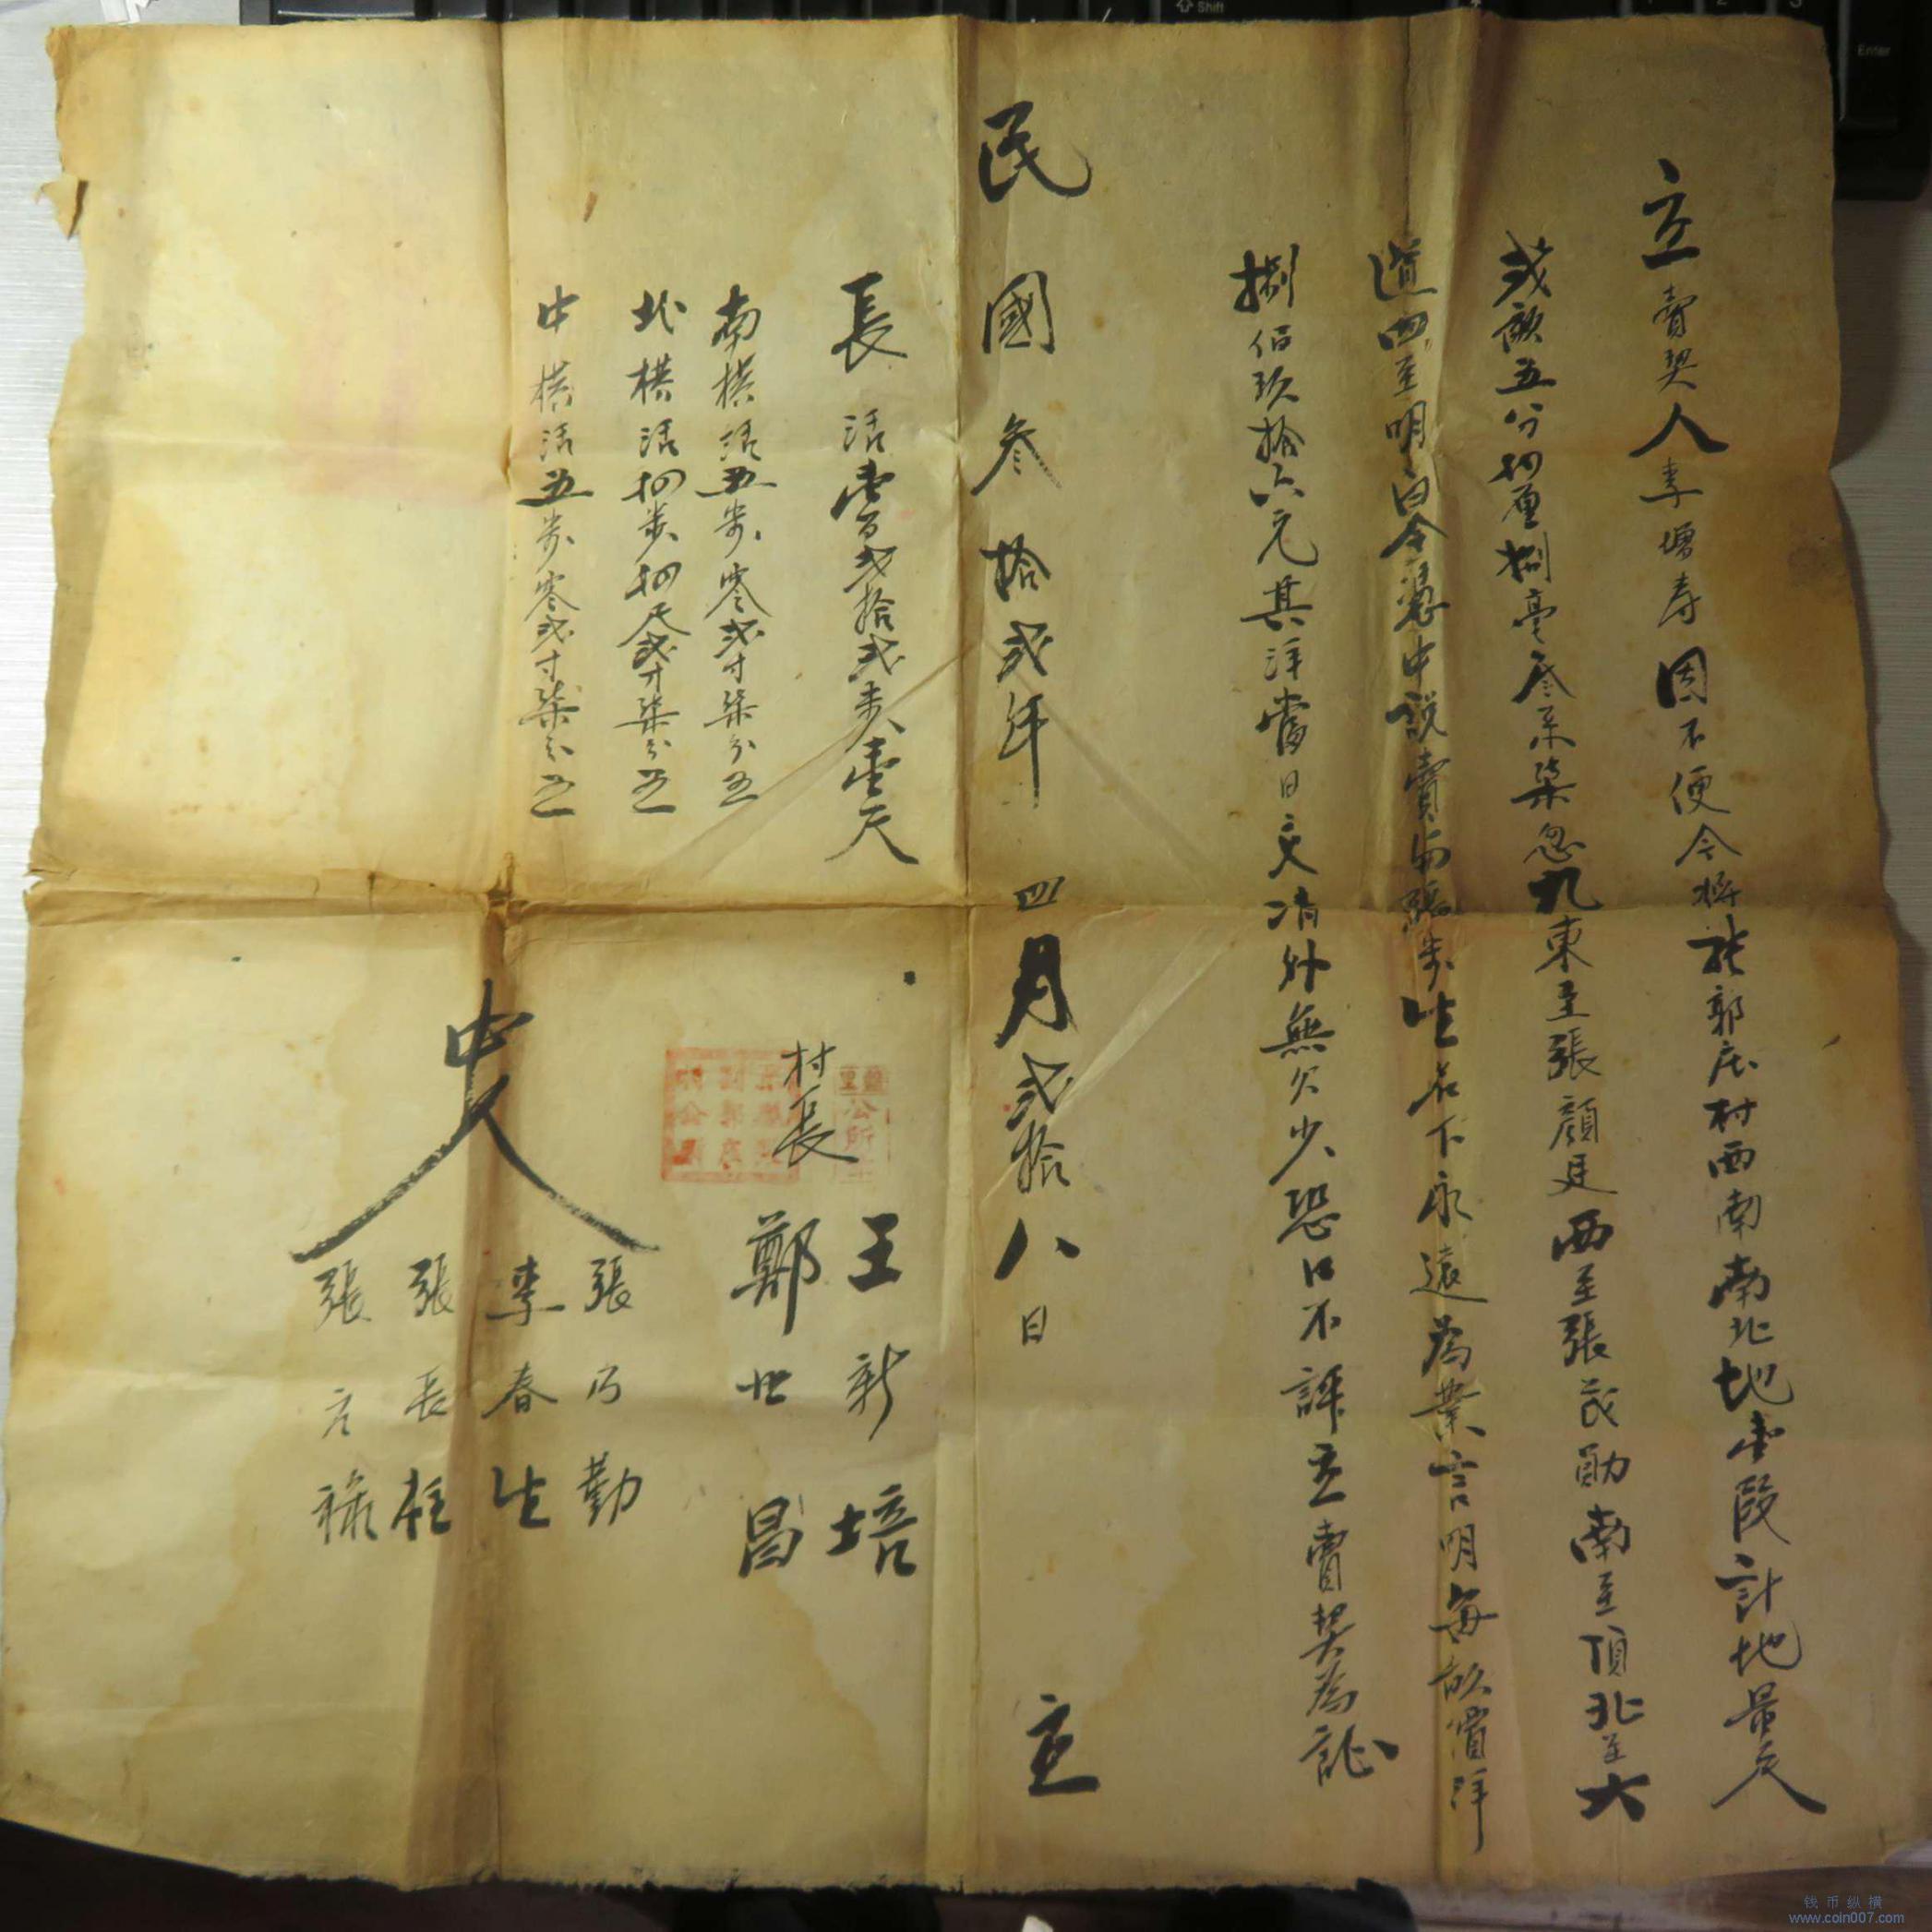 立賣契人李增壽因不便今將郭庄村西南南北地壹段計地量
貳畝五分捌毫叁系柒忽九東至張顏廷西至張茂勛南至頂北至大
道四至明白今憑中說賣與張步生名下永遠為業言明每畝價洋
捌佰玖拾六元其洋當日交清外無欠少恐口不評立賣契為証
民國叁拾貳年四月貳拾八日立
長活壹百貳拾貳步壹尺
南横活五步零貳寸柒分五
北横活步尺貳寸柒分五
中横活五步零貳寸柒分五
村長
王新培
鄭世昌
中人
張乃勤
李春生
張長柱
張元祿
Shift
Enter
钱币纵横
www.coin007.com